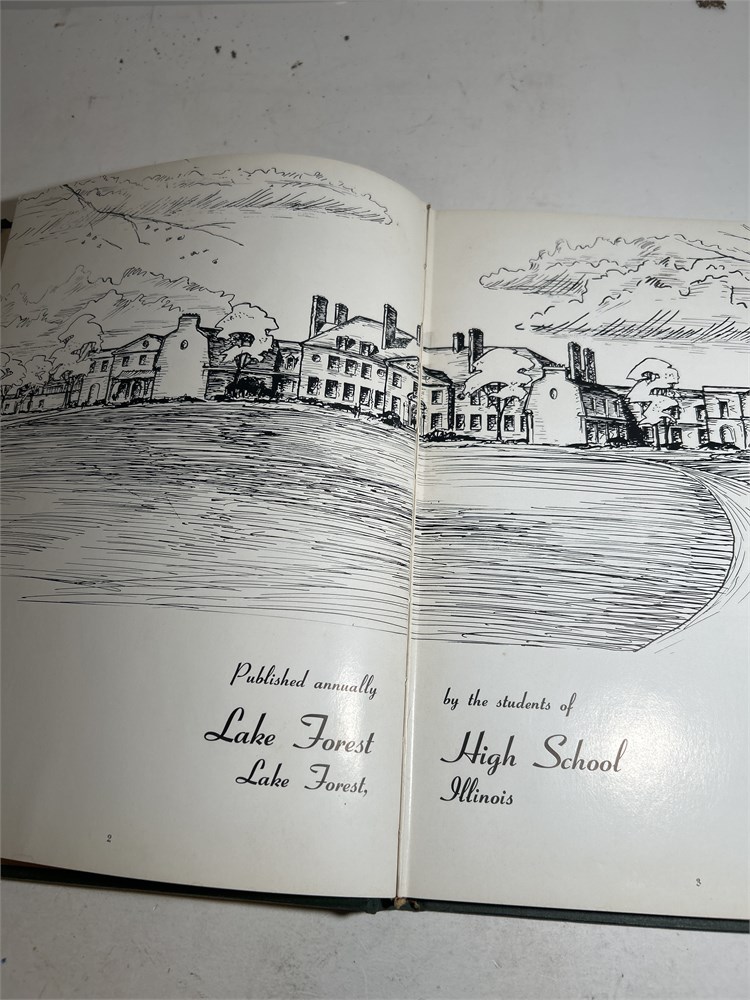 Published annually by the students of
Lake Forest High School
Lake Forest, Illinois
2
3